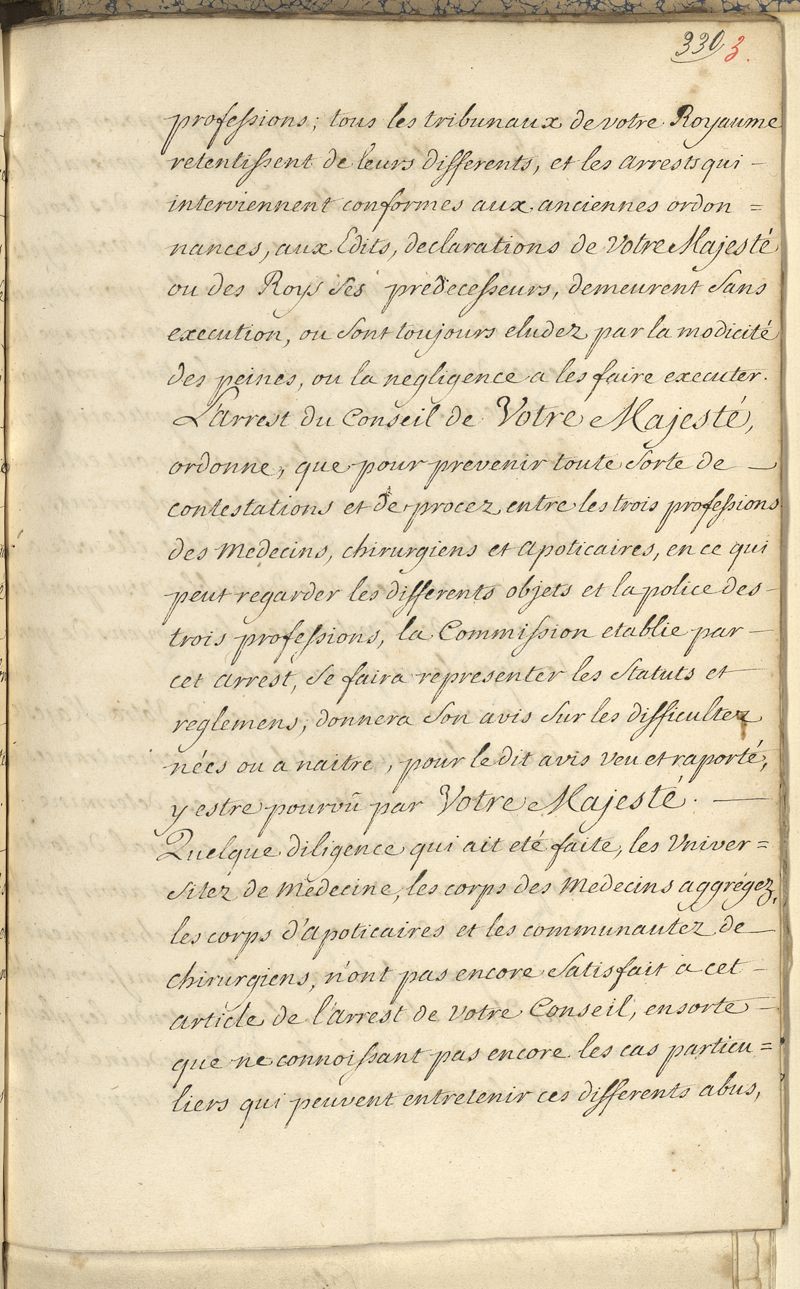 330 3.
professions; tous les tribunaux de votre Royaume
retentissent de leurs differents, et les arrests qui -
interviennent conformes aux anciennes ordon =
nances, aux Edits, declarations de Votre Majesté
ou des Roys ses predecesseurs, demeurent sans
execution, ou sont toujours eludez par la modicité
des peines, ou la negligence a les faire executer.
L'arrest du Conseil de Votre Majesté,
ordonne, que pour prevenir toute sorte de -
contestations et de procez entre les trois professions
des Medecins, chirurgiens et apoticaires, en ce qui
peut regarder les differents objets et la police des -
trois professions, la Commission etablie par -
cet arrest, se faira representer les statuts et
reglemens, donnera son avis sur les difficultez
nées ou a naitre, pour le dit avis veu et raporté,
y estre pourvû par Votre Majesté. -
Quelque diligence qui ait eté faite, les Univer =
sitez de Medecine, les corps des Medecins aggrégez,
les corps d'apoticaires et les communautez de -
chirurgiens, n'ont pas encore satisfait a cet -
article de l'arrest de votre Conseil, ensorte -
que ne connoissant pas encore les cas particu =
liers qui peuvent entretenir ces differents abus,